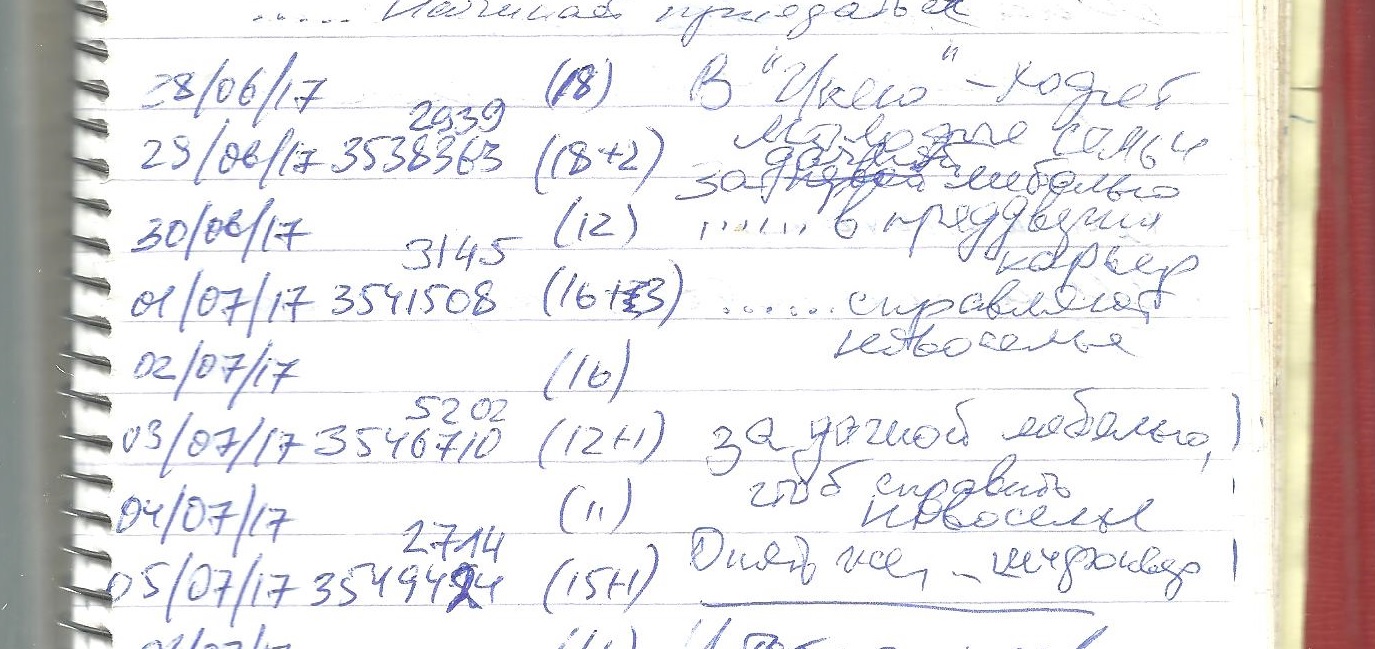 ...... Начинаю
28/06/17 (18) В "Икею" – ходят
2939
молодые семьи
29/06/17 3538363 (18+2)
за дачной мебелью
30/06/17 (12) ...... в преддверии
3145
карьер
01/07/17 3541508 (16+3) ...... справляют
новоселье
02/07/17 (16)
5202
03/07/17 3546710 (12+1) за дачной мебелью,
чтоб справить
04/07/17 (11) новоселье
2714
Опять же, –
05/07/17 3549424 (15+1)